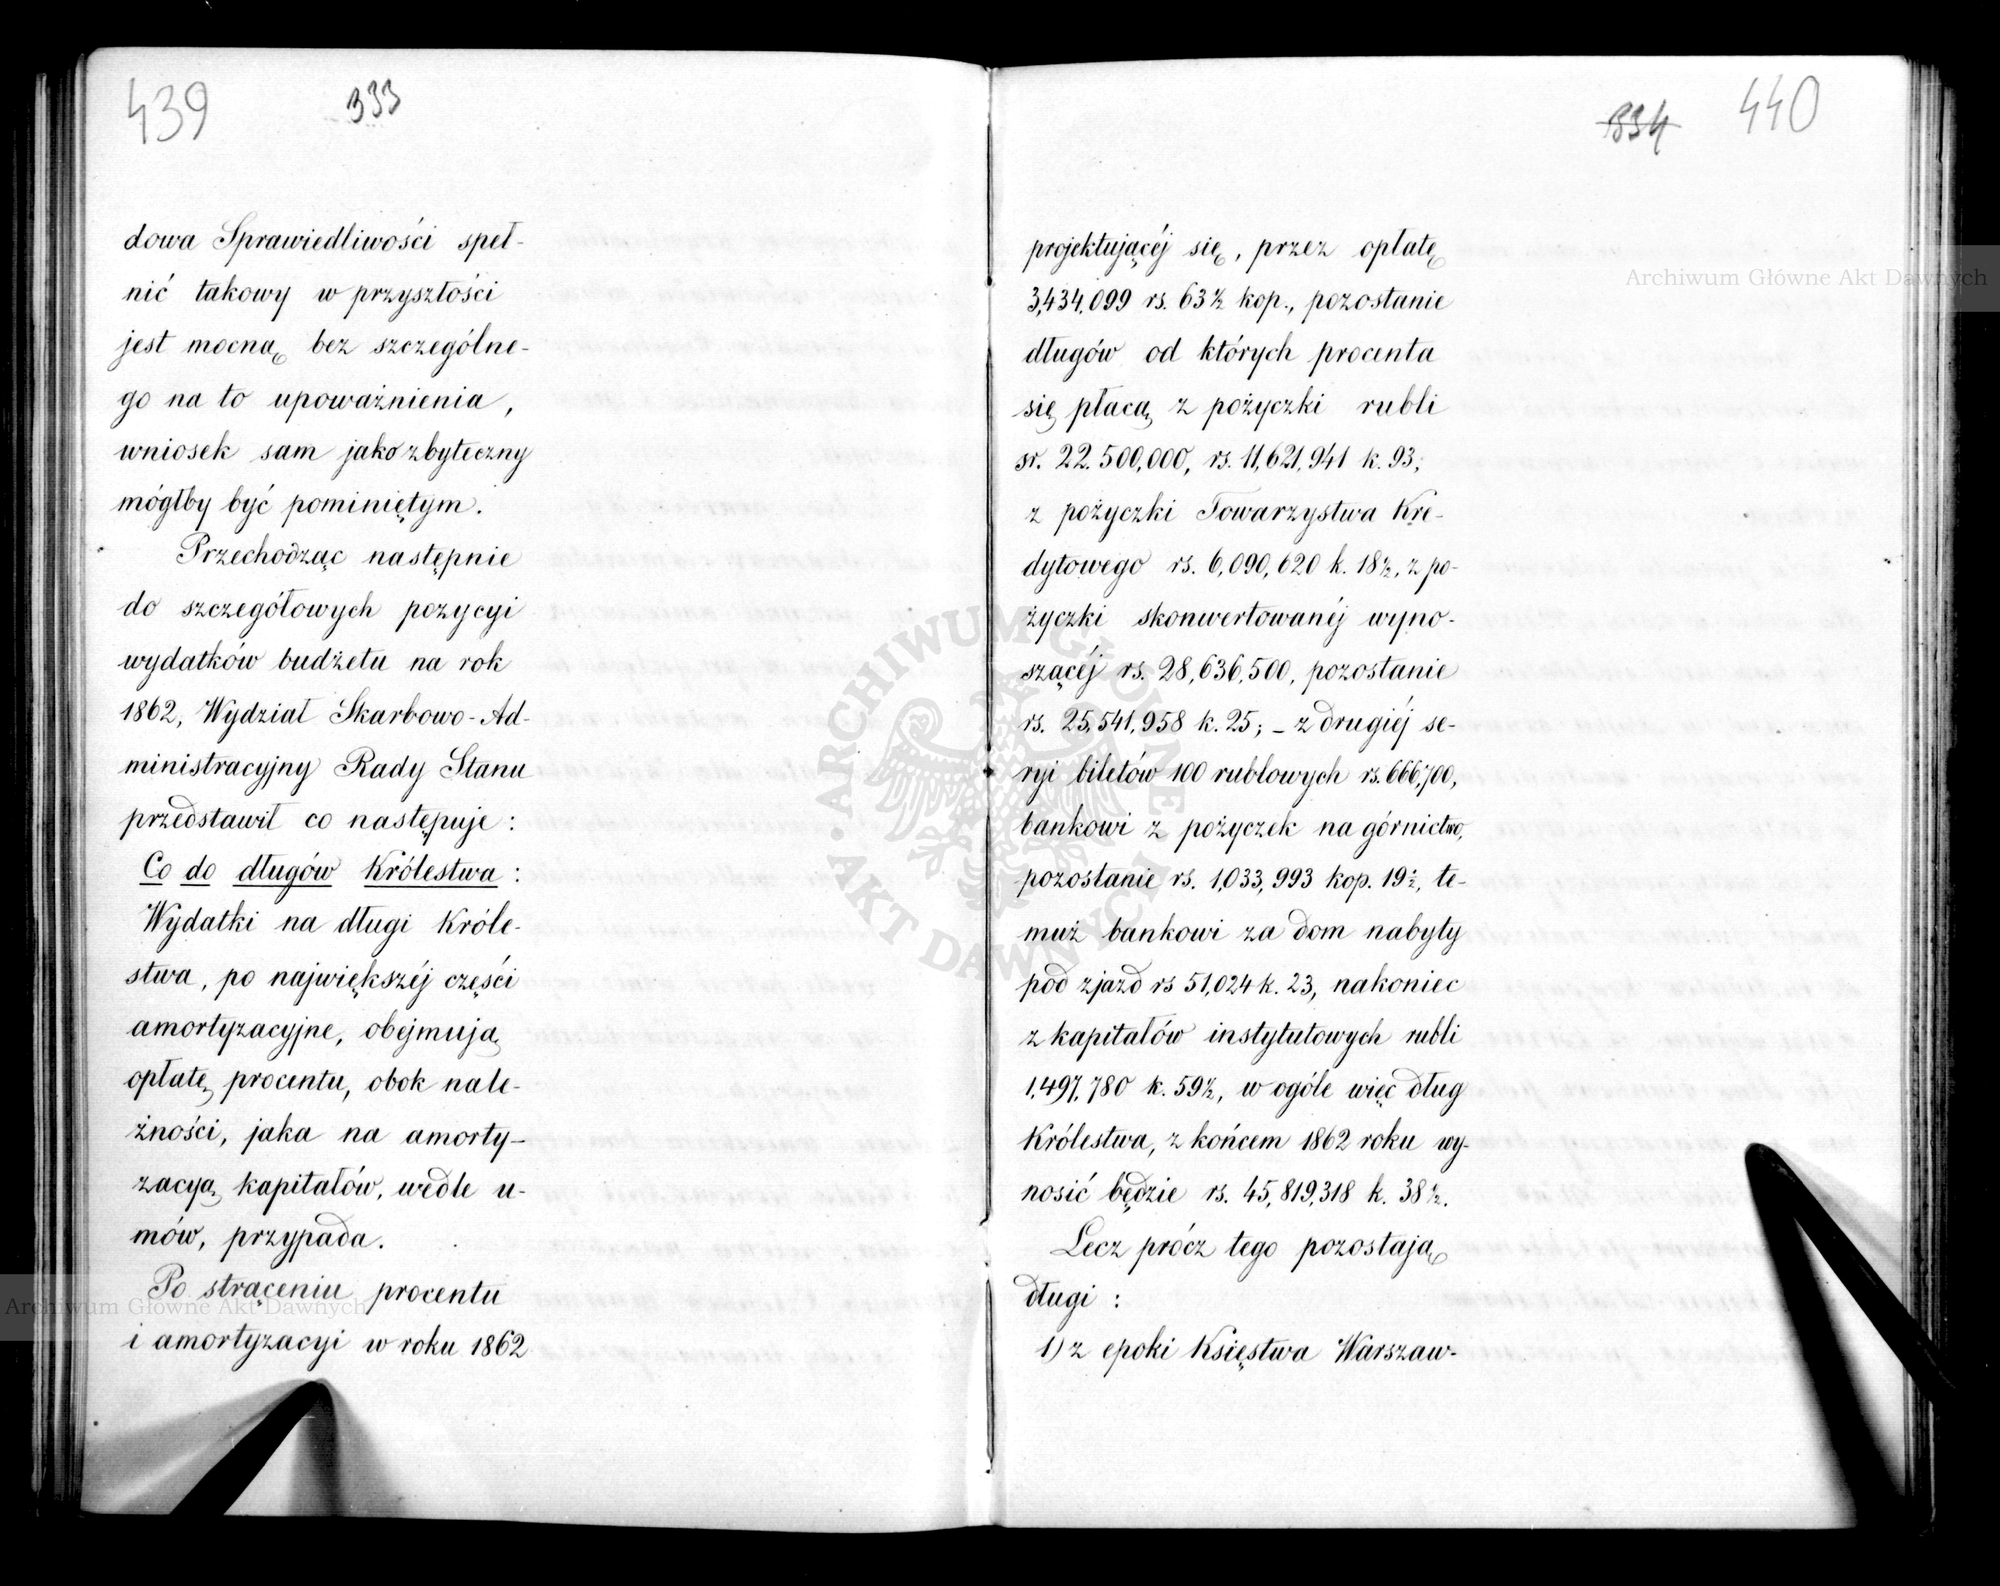 439
333
dowa Sprawiedliwości speł-
nić takowy w przyszłości
jest mocną bez szczególne-
go na to upoważnienia,
wniosek sam jako zbyteczny
mógłby być pominiętym.
Przechodząc następnie
do szczegółowych pozycyi
wydatków budżetu na rok
1862, Wydział Skarbowo-Ad-
ministracyjny Rady Stanu
przedstawił co następuje:
Co do długów Królestwa:
Wydatki na długi Króle-
stwa, po największéj części
amortyzacyjne, obejmują
opłatę procentu, obok nale-
żności, jaka na amorty-
zacyą kapitałów, wedle u-
mów, przypada.
Po strąceniu procentu
i amortyzacyi w roku 1862
334
440
projektującéj się, przez opłatę
3,434,099 rs. 63½ kop., pozostanie
długów od których procenta
się płacą z pożyczki rubli
sr. 22.500,000, rs. 11,621,941 k. 93;
z pożyczki Towarzystwa Kre-
dytowego rs. 6,090,620 k. 18½, z po-
życzki skonwertowanéj wyno-
szącéj rs. 28,636,500, pozostanie
rs. 25,541,958 k. 25; – z drugiéj se-
ryi biletów 100 rublowych rs. 666,700,
bankowi z pożyczek na górnictwo,
pozostanie rs. 1,033,993 kop. 19½, te-
muż bankowi za dom nabyty
pod zjazd rs 51,024 k. 23, nakoniec
z kapitałów instytutowych rubli
1,497,780 k. 59½, w ogóle więc dług
Królestwa, z końcem 1862 roku wy-
nosić będzie rs. 45,819,318 k. 38½.
Lecz prócz tego pozostają
długi:
1) z epoki Księstwa Warszaw-
Archiwum Główne Akt Dawnych
Archiwum Główne Akt Dawnych
ARCHIWUM GŁÓWNE AKT DAWNYCH